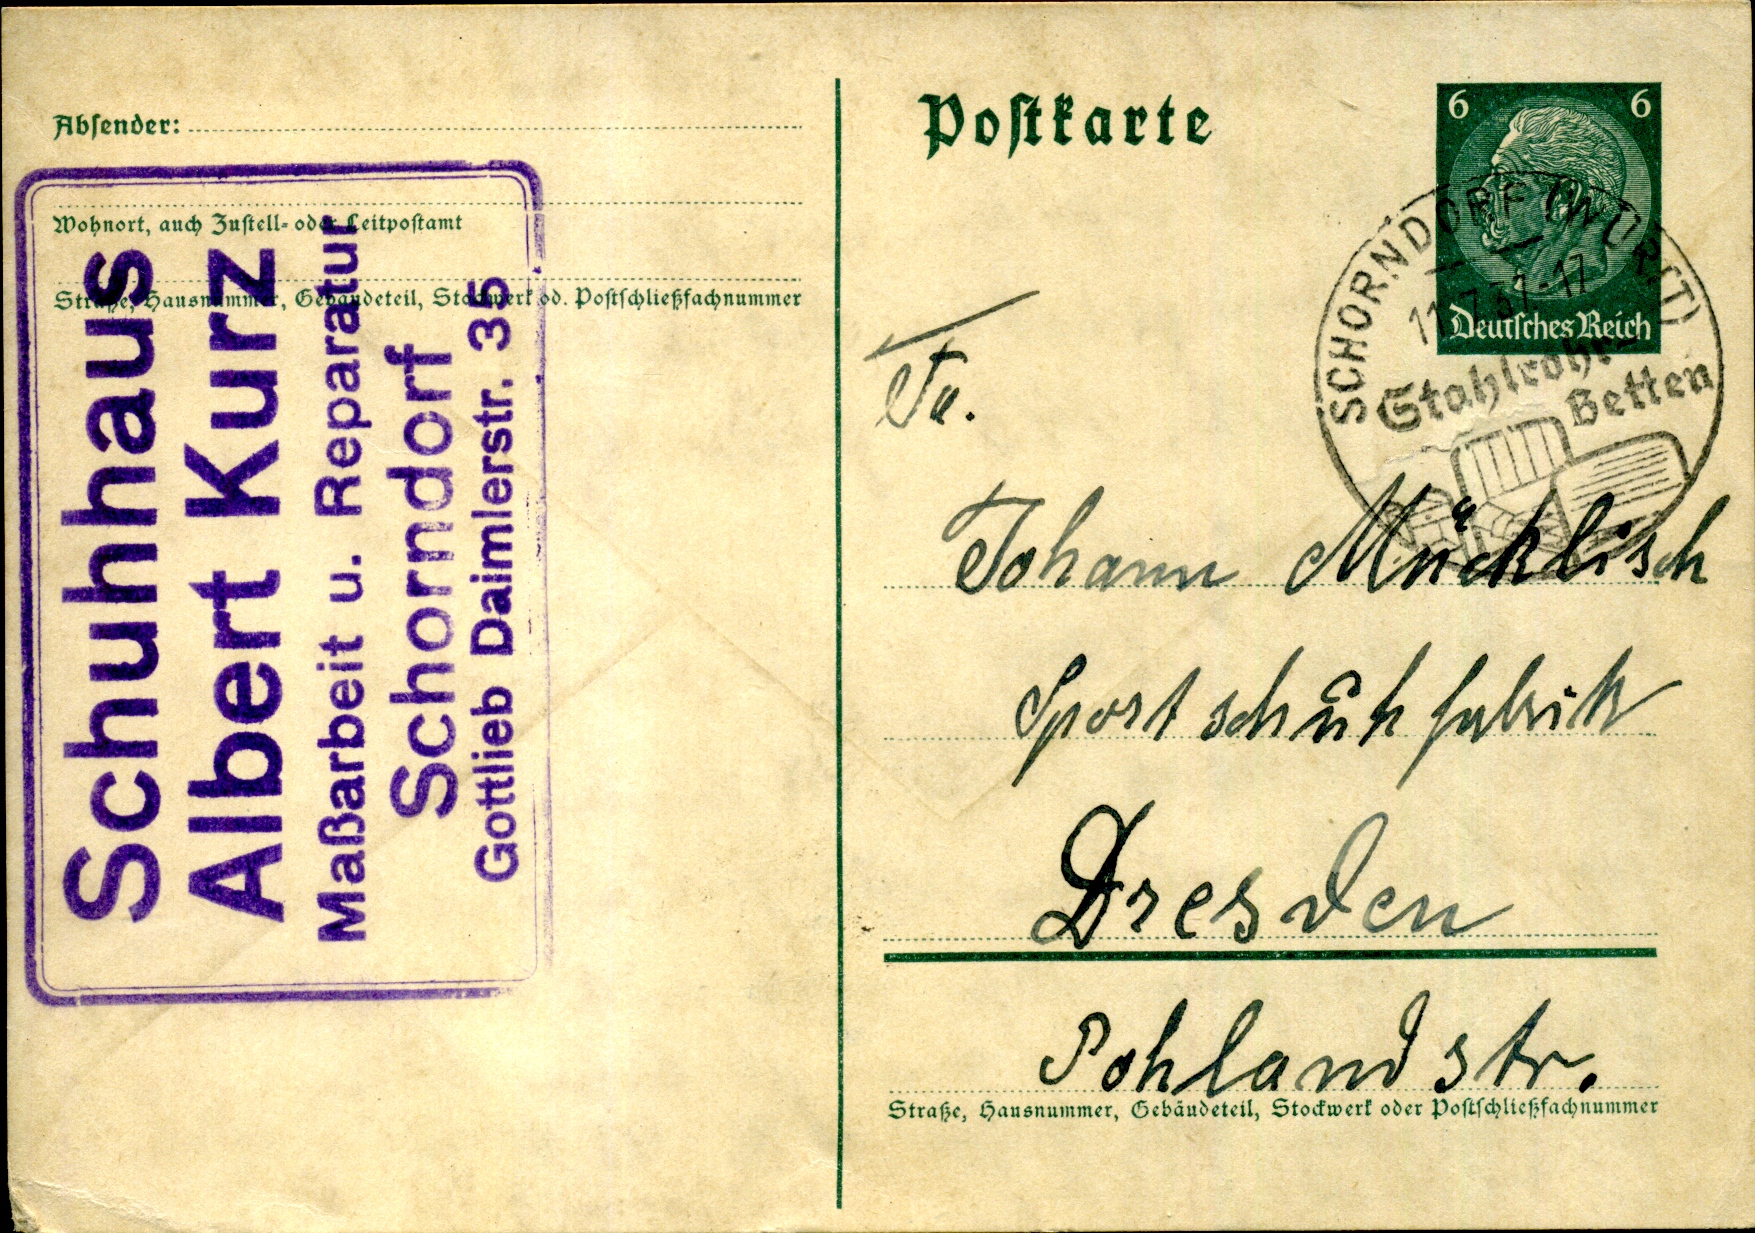 Absender:
Wohnort, auch Zustell- oder Leitpostamt
Straße, Hausnummer, Gebäudeteil, Stockwerk od. Postschließfachnummer
Schuhhaus
Albert Kurz
Maßarbeit u. Reparatur
Schorndorf
Gottlieb Daimlerstr. 35
Postkarte
6 6
Deutsches Reich
SCHORNDORF (WÜRTT)
11.7.37-17
Stahlrohr-
Betten
Fa.
Johann Mücklisch
Sportschuhfabrik
Dresden
Pohlandstr.
Straße, Hausnummer, Gebäudeteil, Stockwerk oder Postschließfachnummer